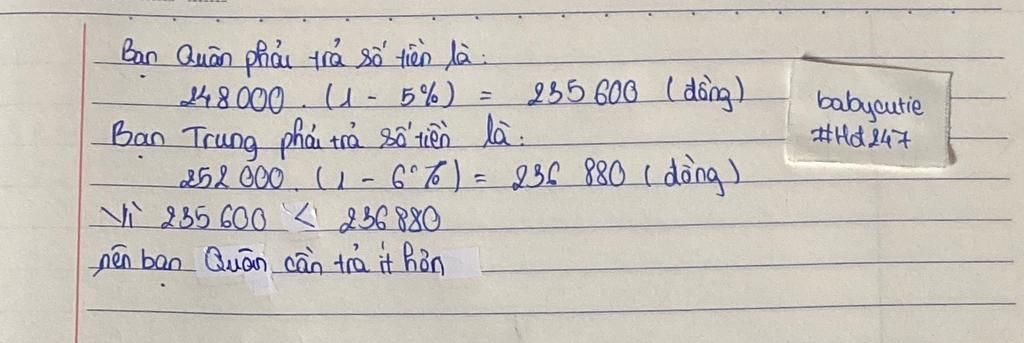 Bạn Quân phải trả số tiền là:
248 000 . (1 - 5%) = 235 600 (đồng)
Bạn Trung phải trả số tiền là:
252 000 . (1 - 6%) = 236 880 (đồng)
Vì 235 600 < 236 880
nên bạn Quân cần trả ít hơn
babycutie
#Hd247